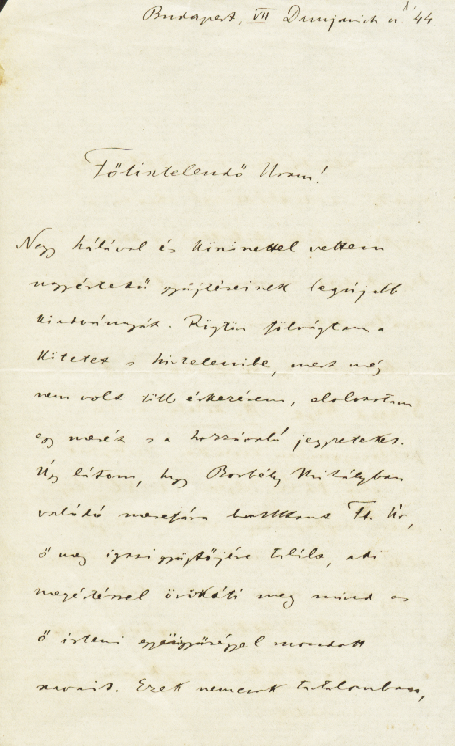 Budapest, VII Damjanich u 44
Főtisztelendő Uram!
Nagy hálával és köszönettel vettem
nagyértékű gyűjtéseinek legújabb
kiadványát. Rögtön fölvágtam a
kötetet s hirtelenibe, mert még
nem volt több érkezésem, elolvastam
egy mesét s a hozzávaló jegyzeteket.
Úgy látom, hogy Borbély Mihályban
valódi mesefára Ft. Úr,
ő meg igazi gyűjtőjére talált, aki
megértéssel örökíti meg mind az
ő isteni együgyűséggel mondott
szavait. Ezek nemcsak tartalomban,